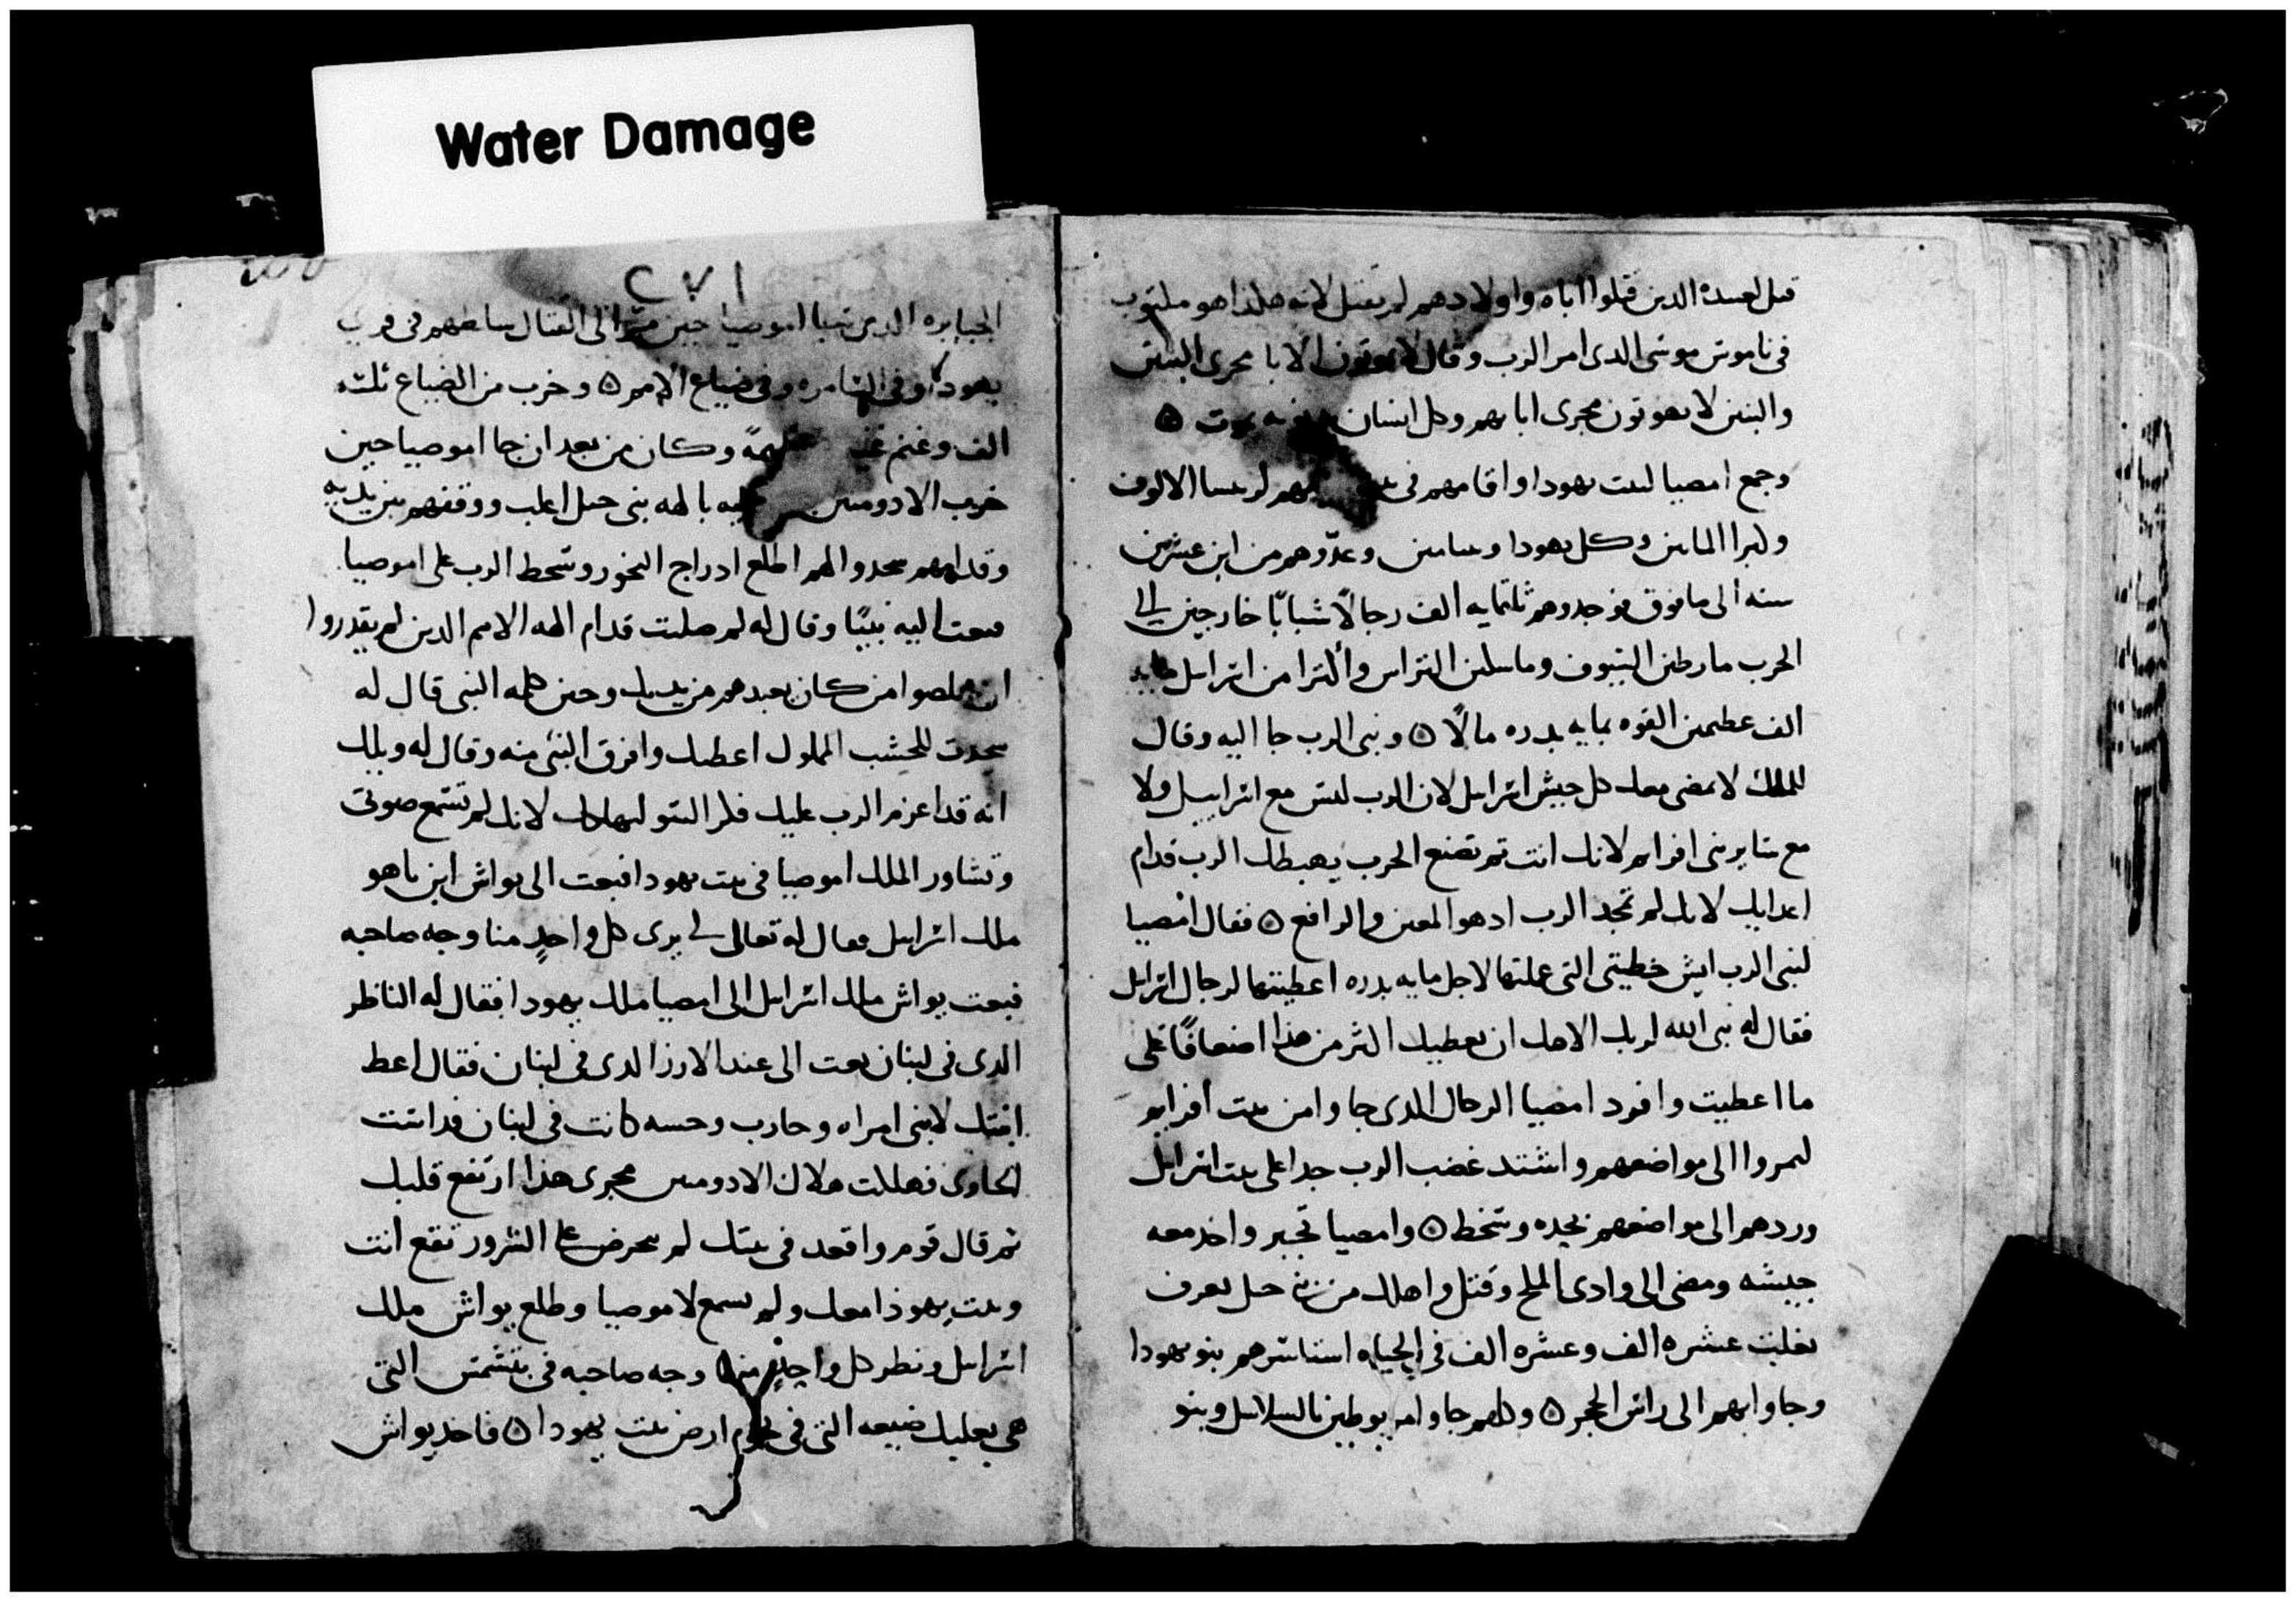 Water Damage
قتل لعبيده الذين قتلوا اباه واولادهم لم يقتل لانه هكذا هو مكتوب
فى ناموس موسى الدى امر الرب وقال لا يموتون الابا مجرى البنين
والبنين لا يموتون مجرى ابايهم وكل انسان يموت ۞
وجمع امصيا لبيت يهودا واقامهم فى لريسا الالوف
وكبرا الماين وكل يهودا وبنيامين وعدّوهم من ابن عشرين
سنه الى ما فوق فوجدوهم ثلثمايه الف رجالًا شبابًا خارجين الى
الحرب ماسكين التراس واكترا من اسراييل مايه
الف عظيمين القوه بمايه بدره مالًا ۞ ونبى الرب جا اليه وقال
للملك لا يمضى معك كل جيش اسراييل لان الرب ليس مع اسراييل ولا
مع ساير بنى افرايم لانك انت تم تصنع الحرب يهبطك الرب قدام
اعدايك لانك لم تجد الرب ادهو المعين والرافع ۞ فقال امصيا
لنبى الرب ايش خطيتى التى عملتها لاجل مايه بدره اعطيتها لرجال اسراييل
فقال له نبى الله لربك ان يعطيك اكثر من هذا اضعافًا على
ما اعطيت وافرد امصيا الرجال الدى جاوا من بيت افرايم
ليمروا الى مواضعهم واشتد غضب الرب جدا على بيت اسراييل
وردهم الى مواضعهم بحده وسخط ۞ وامصيا تجبر واخد معه
جيشه ومضى الى وادى الملح وقتل واهلك من بنى جبل يعرف
بغلبت عشره الف وعشره الف فى الحياه استاسرهم بنو يهودا
وجاوا بهم الى راس الحجر ۞ وكلهم جاوا بهم مربوطين بالسلاسل وبنو
٢٧١
الجبابره الدين سبا اموصيا حين مرّ الى القتال بسطهم فى قرى
يهودا وفى السامره وفى ضياع الامم ۞ وخرب من الضياع ثلثه
الف وغنم عظيمةً وكان من بعد ان جا اموصيا حين
خرب الادومين بالهه بنى جبل اعلب ووقفهم بين يديه
وقدامهم سجد والهم اطلع ادراج البخور وسخط الرب على اموصيا
فبعت اليه نبيًا وقال له لم صليت قدام الهه الامم الدين لم يقدروا
ان يخلصوا من كان يعبدهم من يديك وحين كلمه النبى قال له
سجدت للخشب المملول اعطيك وافرق النبى منه وقال له ويلك
انه قد اعزم الرب عليك لانك لم تسمع صوتى
وتشاور الملك اموصيا فى بيت يهودا فبعت الى يواش ابن ياهو
ملك اسراييل فقال له تعالى لى يرى كل واحدٍ منا وجه صاحبه
فبعت يواش ملك اسراييل الى امصيا ملك يهودا فقال له الناظر
الدى فى لبنان بعت الى عند الارز الدى فى لبنان فقال اعط
ابنتك لابنى امراه وحارب وحسه كانت فى لبنان فداست
الحاوى فهللت هلاك الادومين مجرى هذا ارتفع قلبك
تم قال قوم واقعد فى بيتك لم تحرض على الشرور تقع انت
وبيت يهودا معك ولم يسمع لاموصيا وطلع يواش ملك
اسراييل ونظر كل واحدٍ منهما وجه صاحبه فى بتشمس التى
هى بعليك ضيعه التى فى تخوم ارض بيت يهودا ۞ فاخد يواش